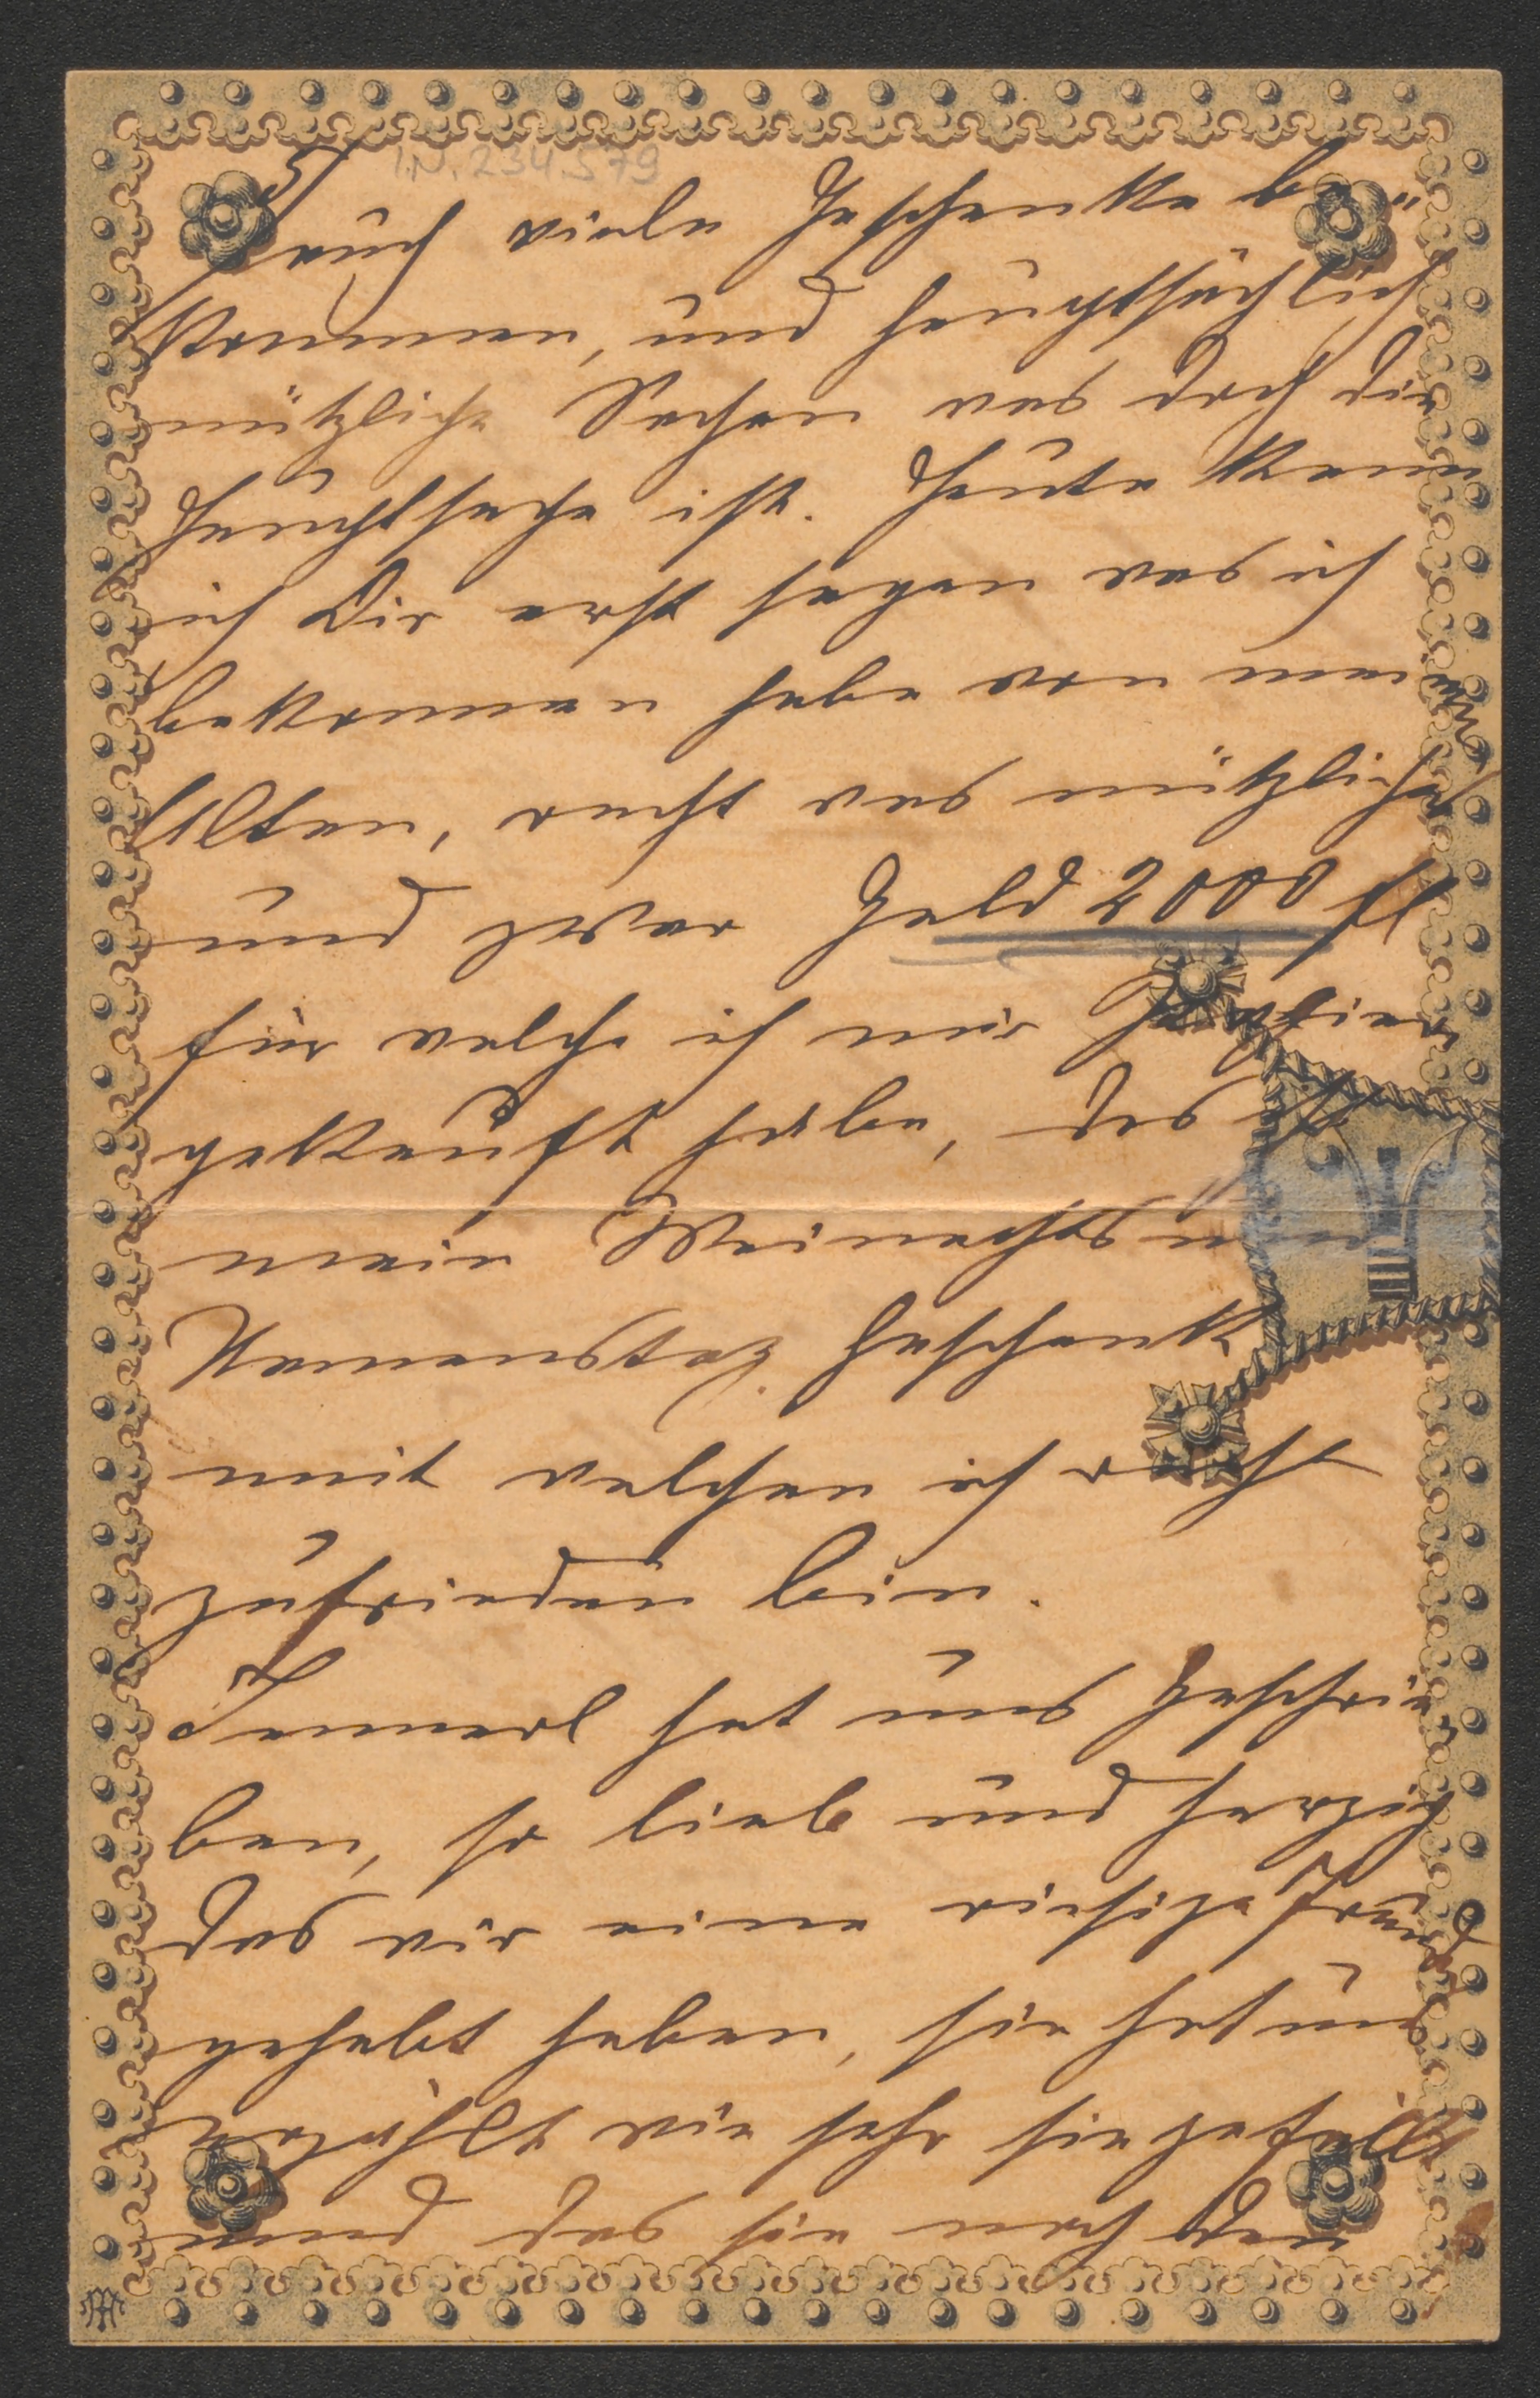 I.N. 234.579
5/
auch viele Geschenke be-
kommen, und hauptsächlich
nützliche Sachen was doch die
Hauptsache ist. Heute kann
ich Dir erst sagen was ich
bekommen habe von meinem
Alten, recht was nützliches
und zwar Geld 2000 fl
für welche ich mir Papier
gekauft habe, das ist
mein Weinachts und
Namenstag Geschenk
mit welchen ich recht
zufrieden bin.
hat uns Geschrie-
ben, so lieb und herzig
das wir eine riesige Freud
gehabt haben, sie hat uns
erzählt wie sehr sie gefällt
und das sie noch den